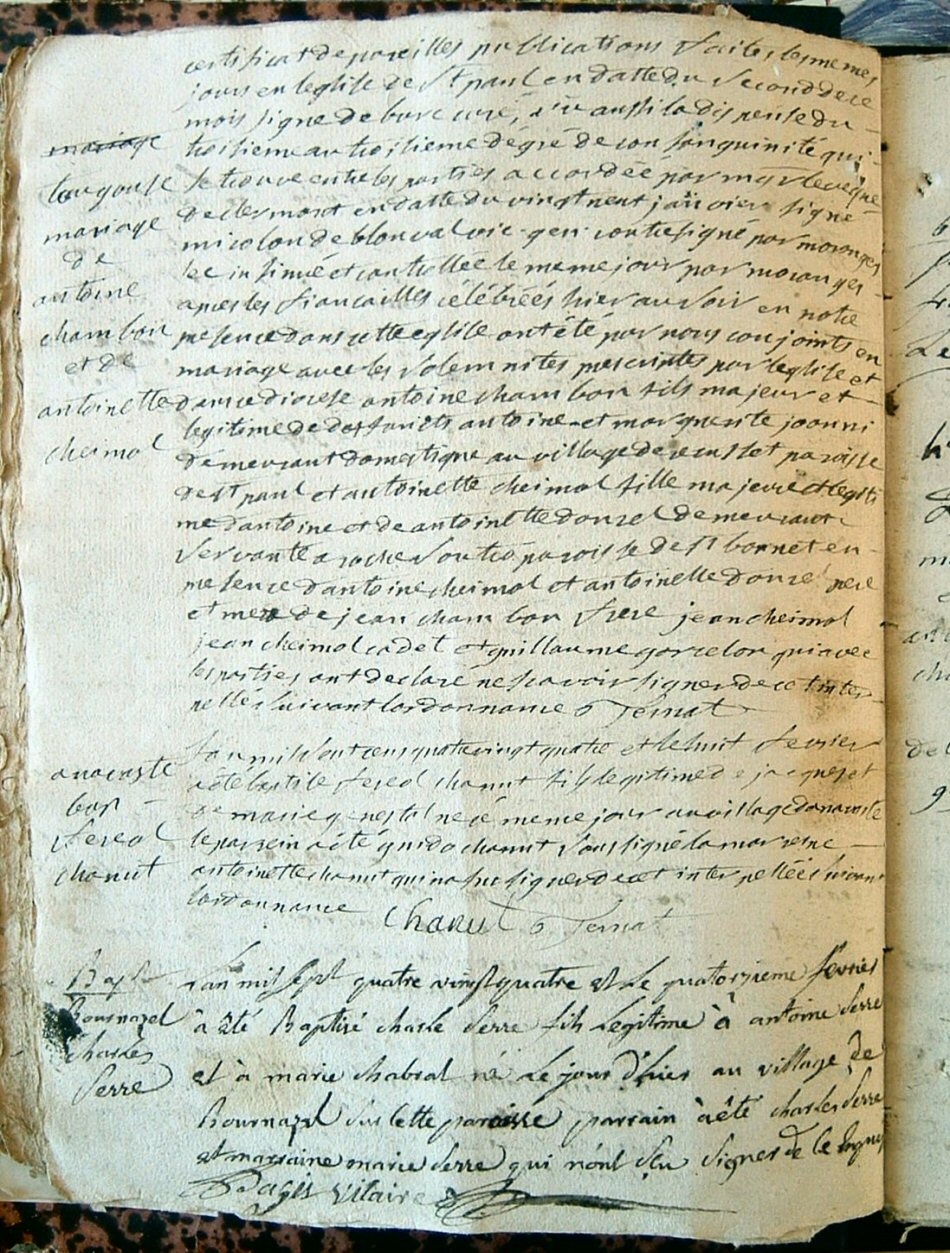 certificat de pareilles publications faites les memes
jours en leglise de St paul en datte du second de ce
mois signé debure curé, vû aussi la dispense du
mariage
troisieme au troisieme degré de consanguinité qui
se trouve entre les parties accordée par mgr leveque
mariage
de clermont en datte du vingt neuf janvier signé
de
micolon de blanval vic. gen. contresigné par moranges
antoine
insinué et controllée le meme jour par moranges
chambon
apres les fiancailles célébrées hier au soir en notre
et de
presence dans cette eglise ont été par nous conjoints en
antoinette
mariage avec les solemnités prescrittes par leglise et
cheimol
dans ce diocese antoine chambon fils majeur et
legitime de deffuncts antoine et marguerite joanni
demeurant domestique au village de paroisse
de St paul et antoinette cheimol fille majeure et legiti
me dantoine et de antoinette donzel demeurant
servante a paroisse de St bonnet en
presence dantoine cheimol et antoinette donzel pere
et mere de jean chambon frere jean cheimol
jean cheimol cadet et guillaume gorcelon qui avec
les parties ont declaré ne scavoir signer de ce inter
pellés suivant lordonnance Ternat
lan mil sept cens quatre vingt quatre et le huit fevrier
bap
a été baptisé fereol chanut fils legitime de jacques et
fereol
de marie né ce même jour au village
chanut
le parrein a été guido chanut soussigné la marreine
antoinette chanut qui na su signer de ce interpellée suivant
lordonnance Chanut Ternat
Bap
lan mil sept quatre vingt quatre et le quatorzieme fevrier
Bournazel
à été Baptizé charle Serre fils Legitime à antoine Serre
charles
et à marie chabrol né Le jour d'hier au village de
Serre
Bournazel sur cette paroisse parrain à été charles Serre
et marraine marie Serre qui n'ont seu signer de ce
Pagès vicaire